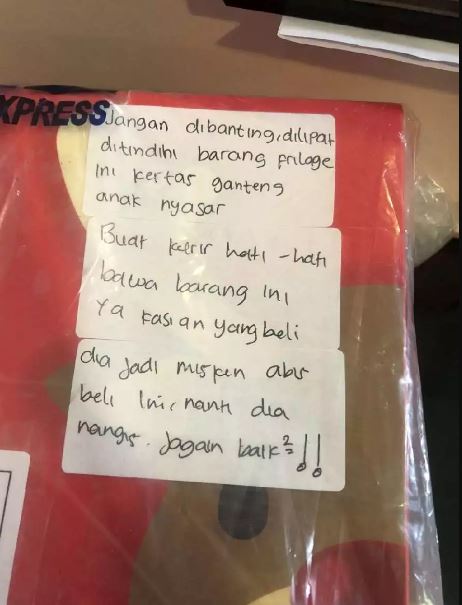 XPRESS
Jangan dibanting, dilipat
ditindihi barang prilage
ini kertas ganteng
anak nyasar
Buat kurir hati-hati
bawa barang ini
ya kasian yang beli
dia jadi misken abis
beli ini, nanti dia
nangis. Jagain baik²!!